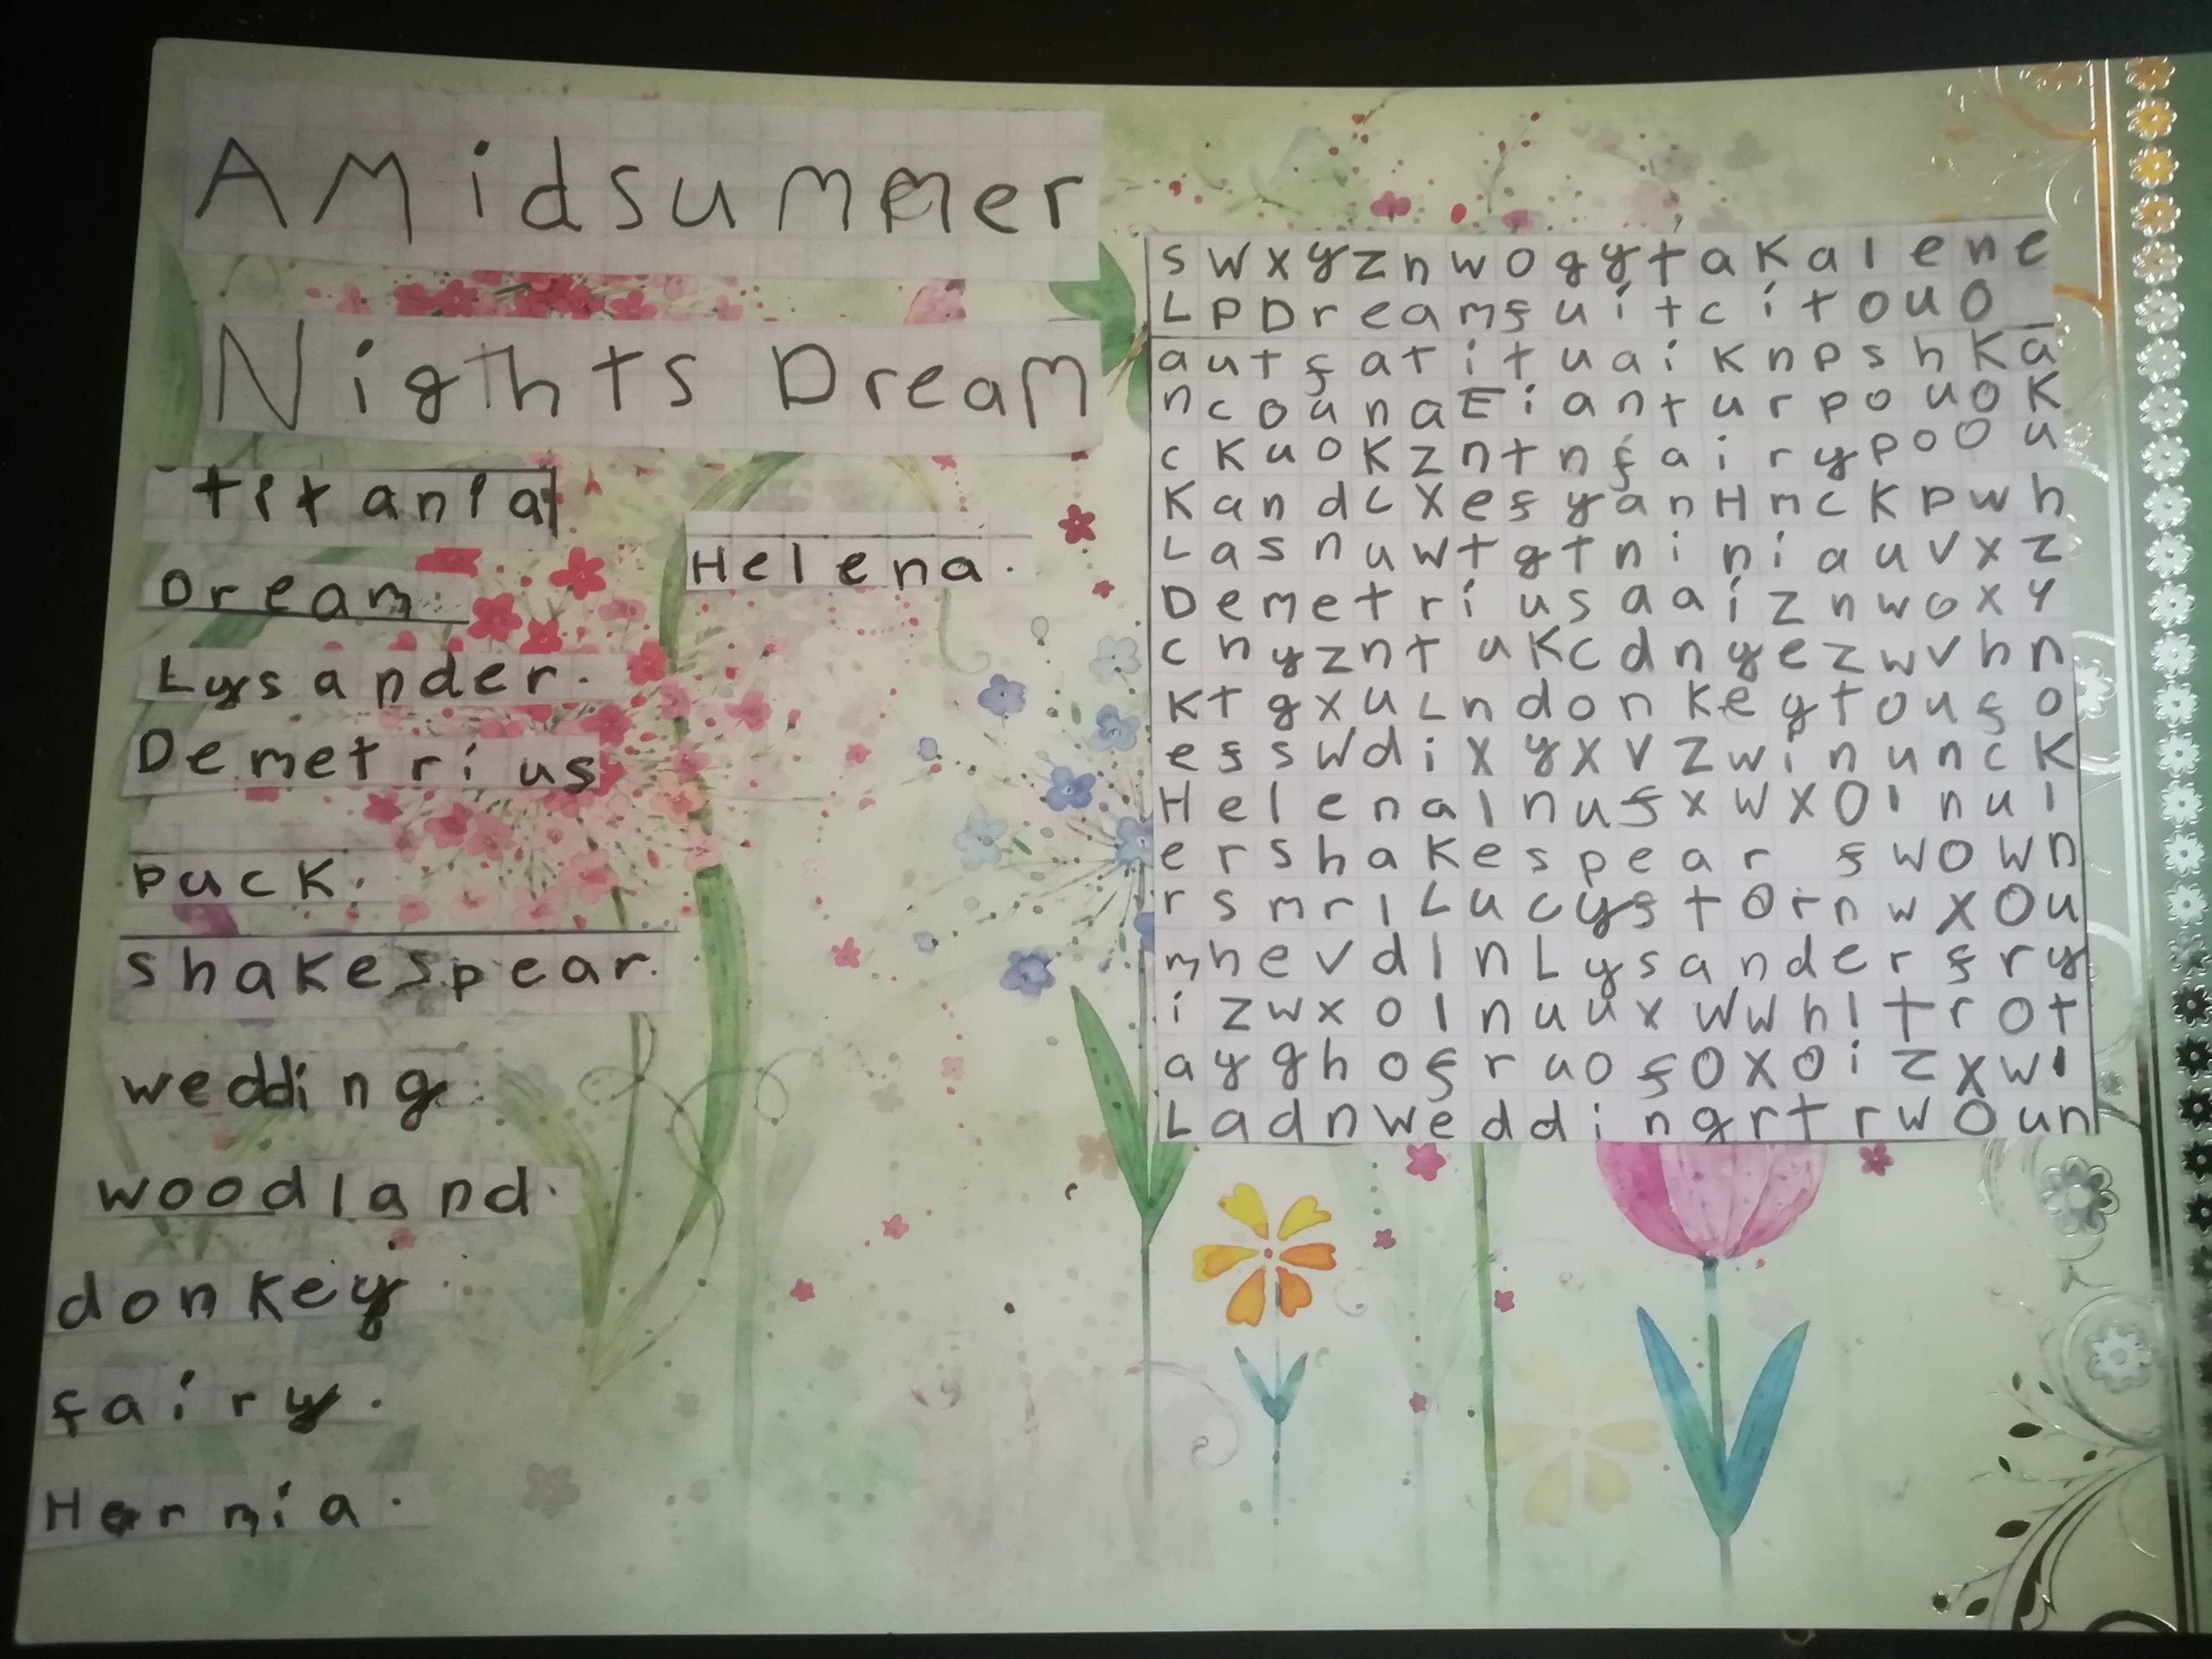 A Midsummer
Nigthts Dream
titania
Dream.
Lysander.
Demetrius
puck.
shakespear.
wedding
woodland.
donkey
fairy.
Hermia.
Helena.
s w x y z n w o g y t a K a l e n e
L P D r e a m f u i t c i t o u o
a u t f a t i t u a i K n p s h K a
n c o u n a E i a n t u r p o u o K
c K u o K z n t n f a i r y p o o u
K a n d c x e f y a n H m c K p w h
L a s n u w t g t n i n i a u v x z
D e m e t r i u s a a i z n w o x y
c n y z n t u K c d n y e z w v h n
K t g x u L n d o n K e y t o u f o
e f s w d i x y x v z w i n u n c K
H e l e n a l n u f x w x o l n u l
e r s h a K e s p e a r f w o w n
r s m r l L u c y f t o r n w x o u
m h e v d l n L y s a n d e r f r y
i z w x o l n u u x w w h l t r o t
a y g h o f r u o f o x o i z x w l
L a d n w e d d i n g r t r w o u n